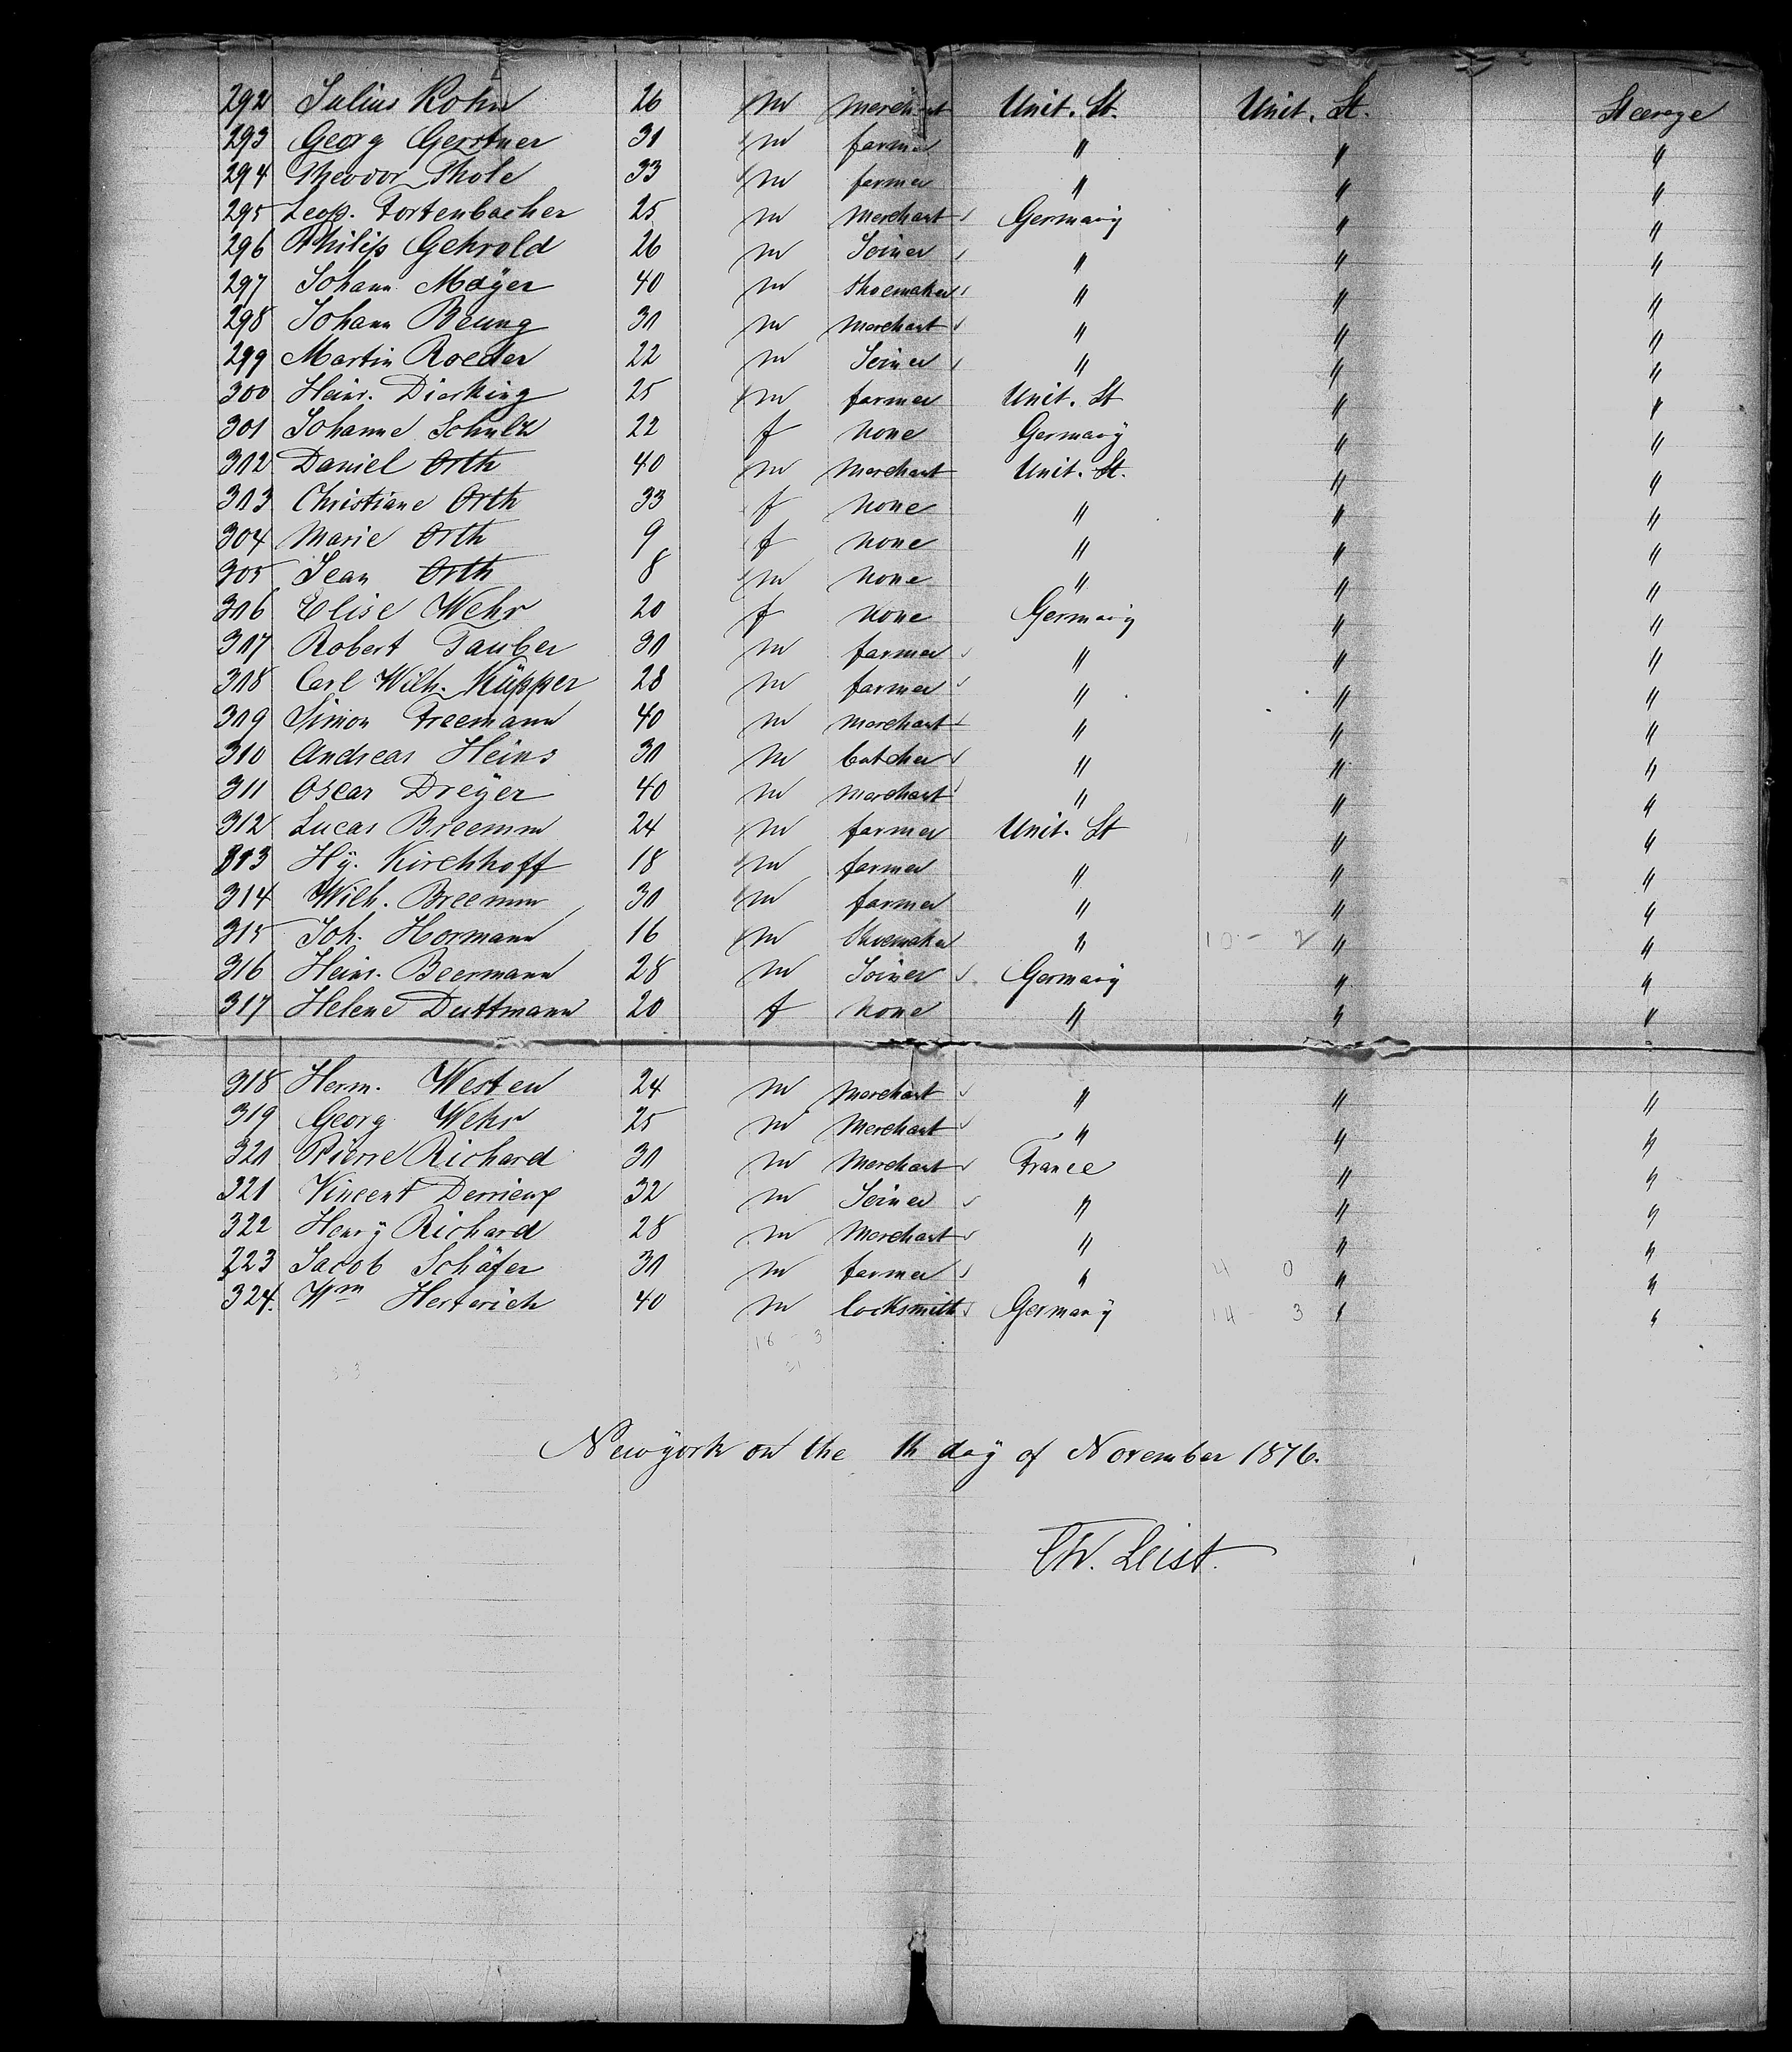 292 Julius Kohn 26 m merchant Unit. St. Unit. St. Steerage
293 Georg Gerstner 30 m farmer " " "
294 Theodor Thole 33 m farmer " " "
295 Leop. Fortenbacher 25 m Merchant Germany " "
296 Philip Gehrold 26 m Joiner " " "
297 Johann Mayer 40 m Shoemaker " " "
298 Johann Beung 30 m Merchant " " "
299 Martin Roeder 22 m Joiner " " "
300 Heinr. Dierking 25 m farmer Unit. St " "
301 Johanne Schultz 22 f None Germany " "
302 Daniel Orth 40 m Merchant Unit. St. " "
303 Christiane Orth 33 f None " " "
304 Marie Orth 9 f None " " "
305 Jean Orth 8 m None " " "
306 Elise Wehr 20 f None Germany " "
307 Robert Tauber 30 m farmer " " "
308 Carl Wilh. Küpper 28 m farmer " " "
309 Simon Freemann 40 m Merchant " " "
310 Andreas Heins 30 m butcher " " "
311 Oscar Dreyer 40 m Merchant " " "
312 Lucas Breemm 24 m farmer Unit. St " "
313 Hy. Kirchhoff 18 m farmer " " "
314 Wilh. Breemm 30 m farmer " " "
315 Joh. Hormann 16 m Shoemaker " 10 - 2 " "
316 Heinr. Beermann 28 m Joiner Germany " "
317 Helene Duttmann 20 f None " " "
318 Herm. Westen 24 m Merchant " " "
319 Georg Wehr 25 m Merchant " " "
320 Pierre Richard 30 m Merchant France " "
321 Vincent Derrieux 32 m Joiner " " "
322 Henry Richard 28 m Merchant " " "
323 Jacob Schäfer 30 m farmer " 4 0 " "
324. Wm Herterich 40 m locksmith Germany 14 - 3 " "
18 - 3
Newyork on the th day of November 1876.
CW. Leist.